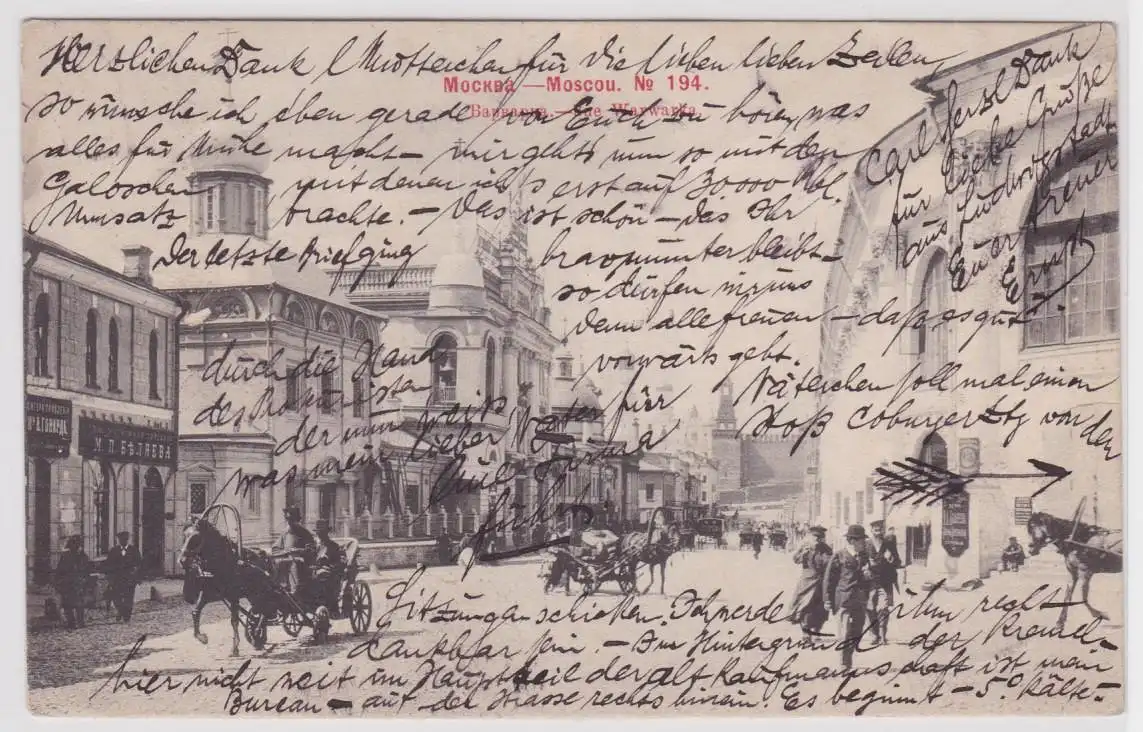 Herzlichen Dank l. Mütterchen für die lieben lieben Zeilen,
Москва — Moscou. № 194.
Варварка. — Rue Warwarka.
so wünsche ich eben gerade von Euch zu hören, was
alles für Mühe macht — mir gehts nun so mit den
Galoschen mit denen ich's erst auf 30000 Rbl.
Umsatz brachte. — Das ist schön — das Ihr
Der letzte Brief ging
brav munter bleibt —
so dürfen wir uns
denn alle freuen — daß es gut
vorwärts geht.
durch die Hand
des Prokuristen
der nun weiß
was mein lieber Vater für
eine Firma
führt
Carl herzl Dank
für liebe Grüße
aus Ludwigstadt
Euer treuer
Ernst
Väterchen soll mal einen
Stoß Coburger Ztg von den
Sitzungen schicken. Ich werde ihm recht
dankbar sein. — Im Hintergrund der Kreml —
hier nicht weit im Hauptteil der alt Kaufmannschaft ist mein
Bureau — auf der Strasse rechts hinein. Es beginnt — 5° Kälte —
М. П. БѢЛЯЕВА